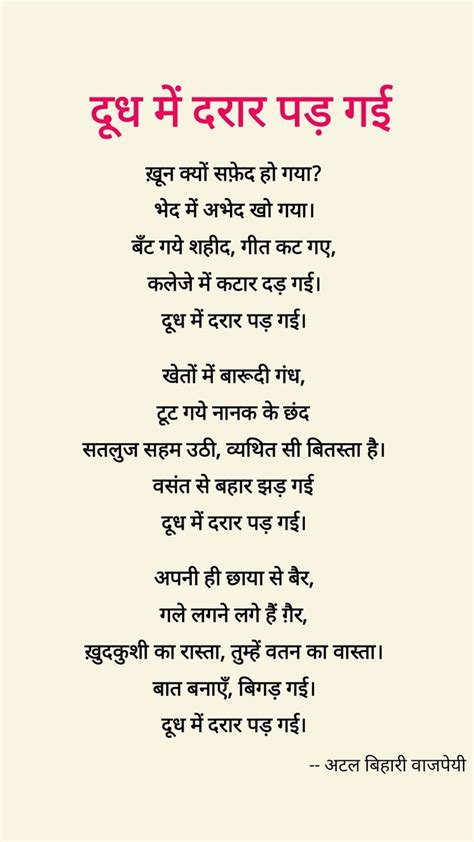 दूध में दरार पड़ गई
ख़ून क्यों सफ़ेद हो गया?
भेद में अभेद खो गया।
बँट गये शहीद, गीत कट गए,
कलेजे में कटार दड़ गई।
दूध में दरार पड़ गई।
खेतों में बारूदी गंध,
टूट गये नानक के छंद
सतलुज सहम उठी, व्यथित सी बितस्ता है।
वसंत से बहार झड़ गई
दूध में दरार पड़ गई।
अपनी ही छाया से बैर,
गले लगने लगे हैं ग़ैर,
ख़ुदकुशी का रास्ता, तुम्हें वतन का वास्ता।
बात बनाएँ, बिगड़ गई।
दूध में दरार पड़ गई।
-- अटल बिहारी वाजपेयी